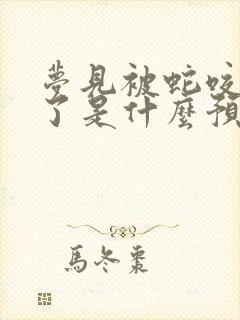 夢見被蛇咬
了是什麼預
馬冬棗